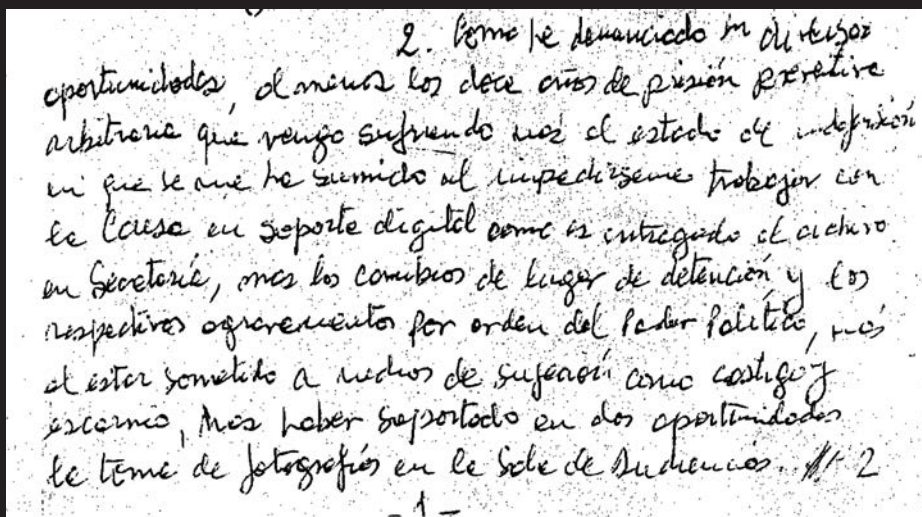 2. Como he denunciado en diversas
oportunidades, al menos los doce años de prisión preventiva
arbitraria que vengo sufriendo mas el estado de indefensión
en que se me ha sumido al impedirseme trabajar con
la Causa en soporte digital como es entregado el archivo
en Secretaría, mas los cambios de lugar de detención y los
respectivos agravamientos por orden del Poder Político, más
el estar sometido a medios de sujeción como castigo y
escarnio, mas haber soportado en dos oportunidades
la toma de fotografías en la Sala de Audiencias. //- 2
- 1 -